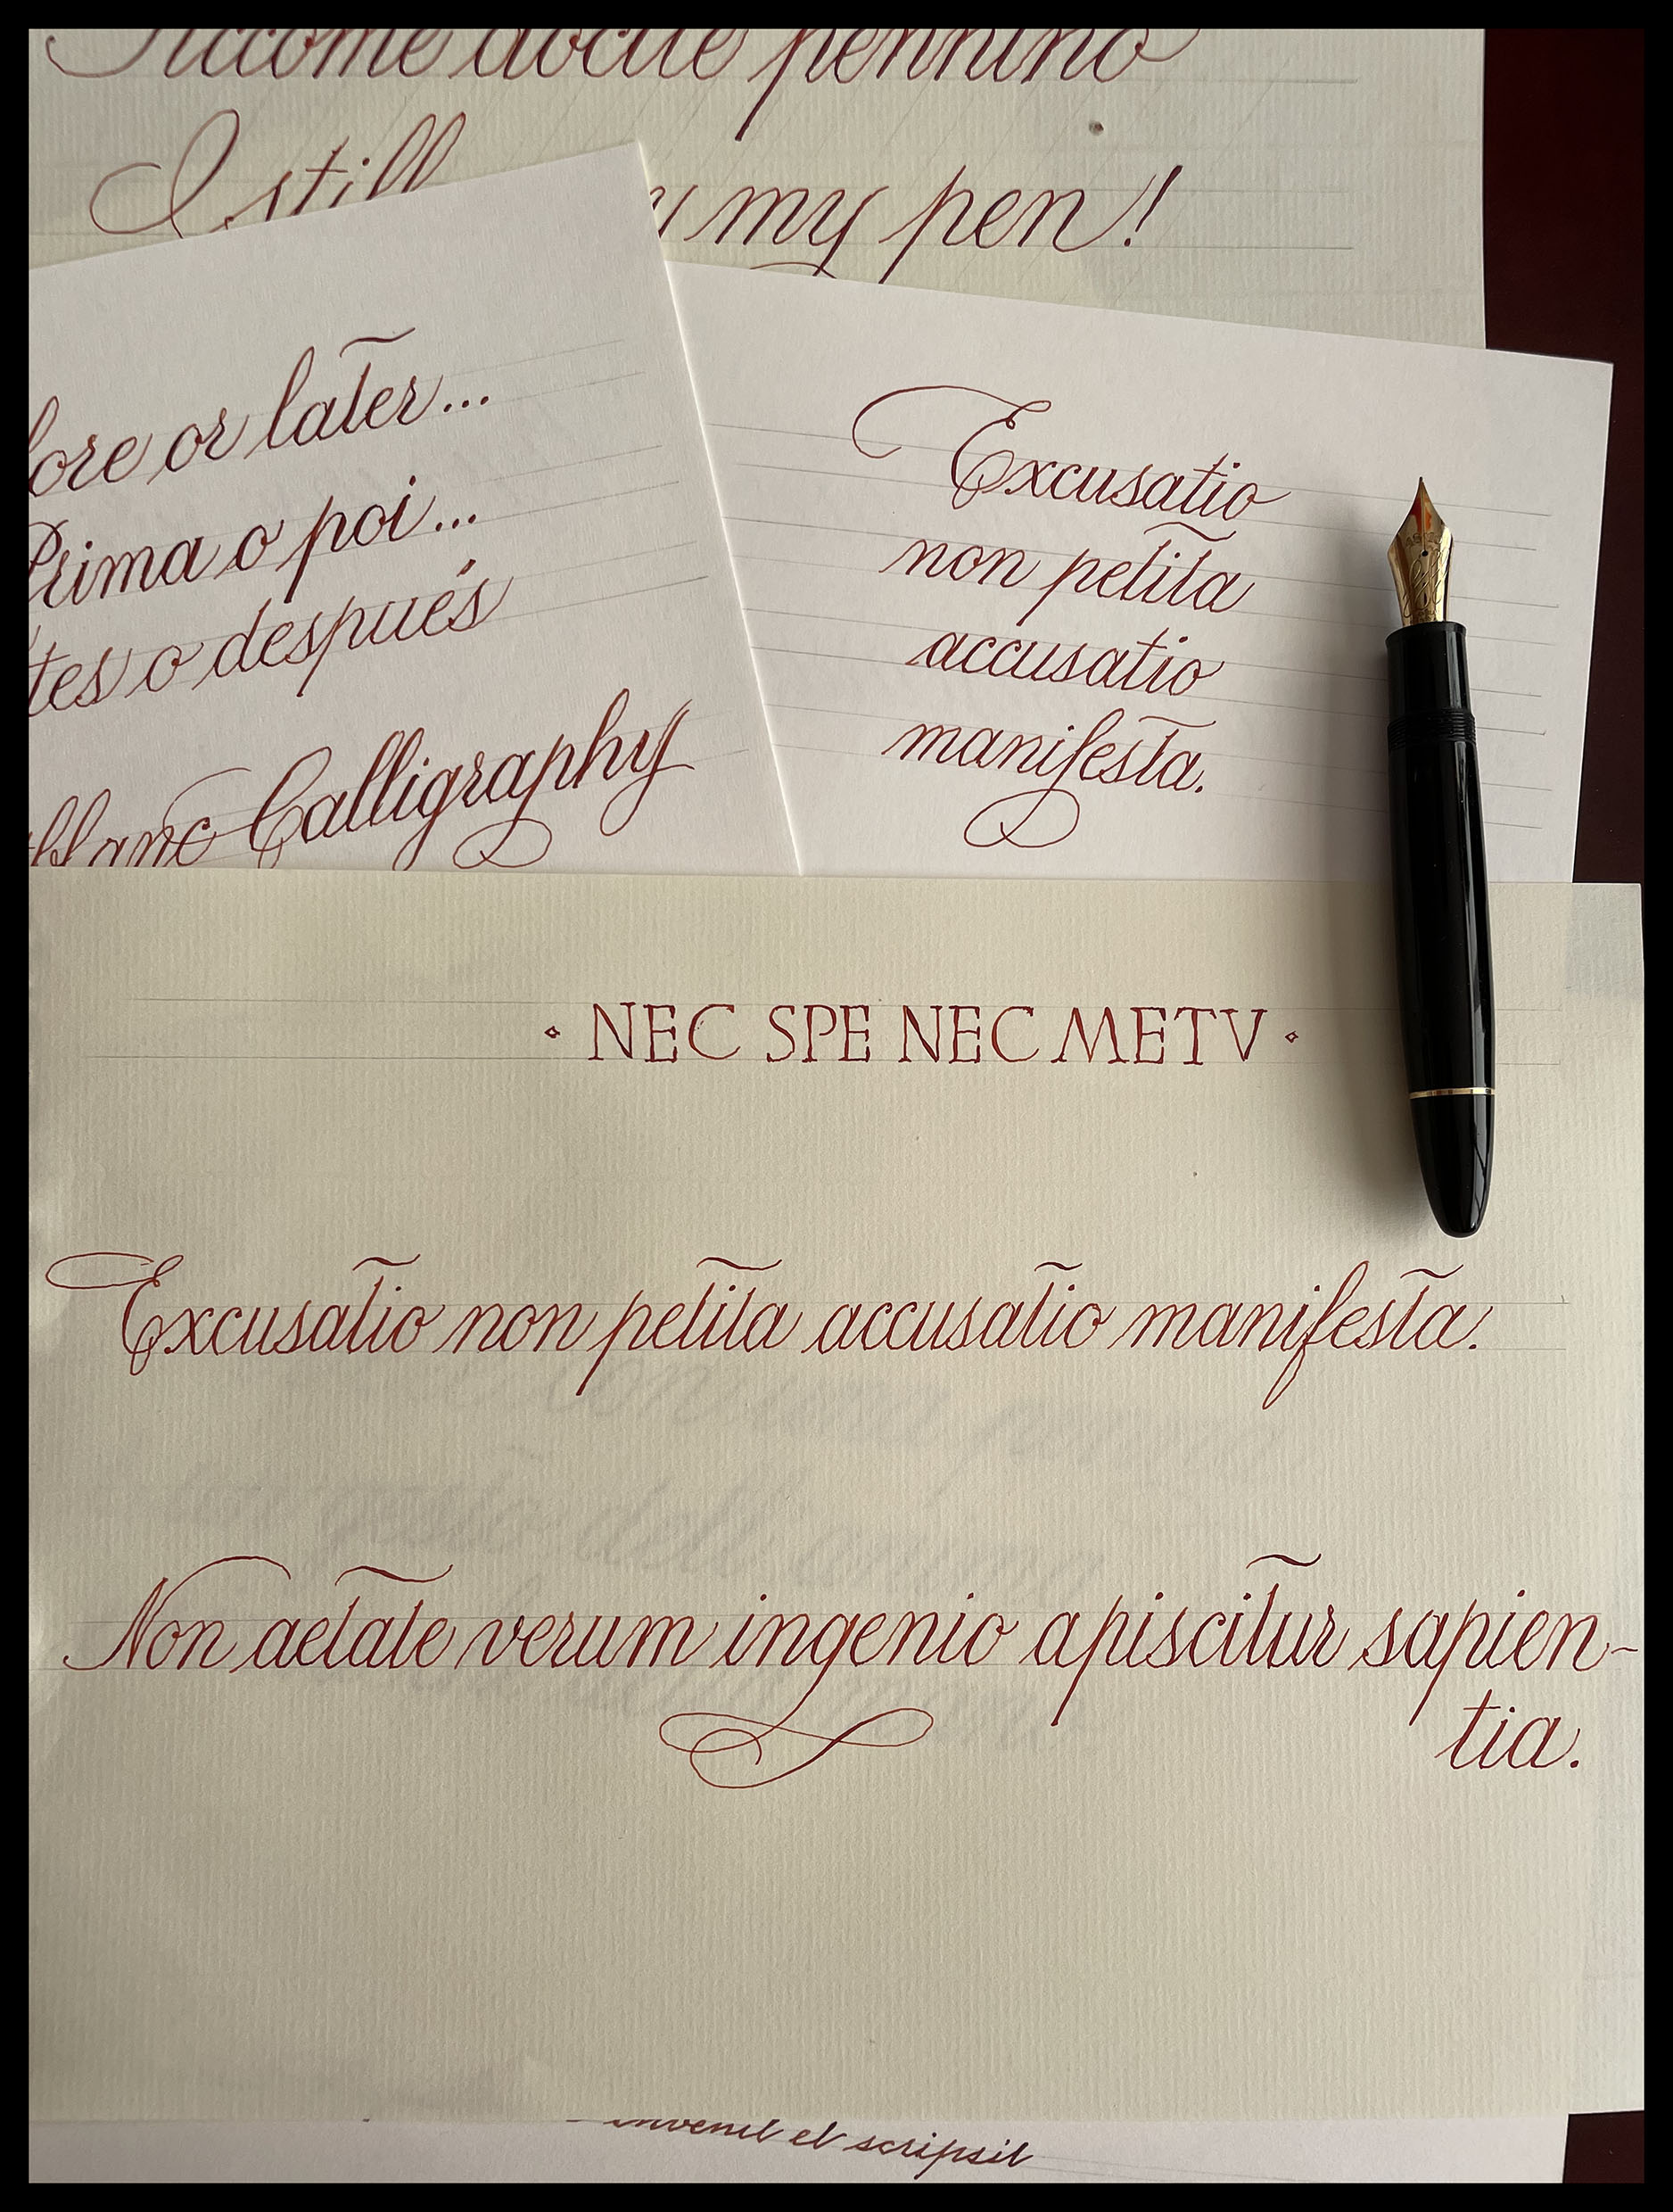 docile pennino
I still my pen!
or later...
Prima o poi...
o después
Calligraphy
Excusatio
non petita
accusatio
manifesta.
· NEC SPE NEC METV ·
Excusatio non petita accusatio manifesta.
Non aetate verum ingenio apiscitur sapien-
tia.
invenit et scripsit